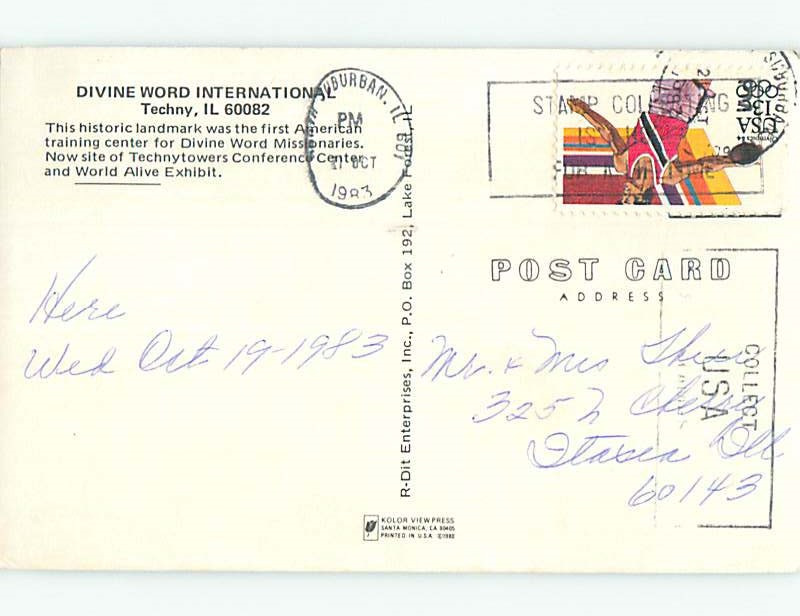 DIVINE WORD INTERNATIONAL
Techny, IL 60082
This historic landmark was the first American
training center for Divine Word Missionaries.
Now site of Technytowers Conference Center
and World Alive Exhibit.
SUBURBAN, IL 607
PM
OCT
1983
STAMP COLLECTING
USA
13c
Olympics 84
POST CARD
ADDRESS
COLLECT
USA
Here
Wed Oct 19-1983
Mr. & Mrs
325 N Cherry
Itasca Ill
60143
R-Dit Enterprises, Inc., P.O. Box 192, Lake Forest, IL
KOLOR VIEW PRESS
SANTA MONICA, CA 90405
PRINTED IN U.S.A. ©1980